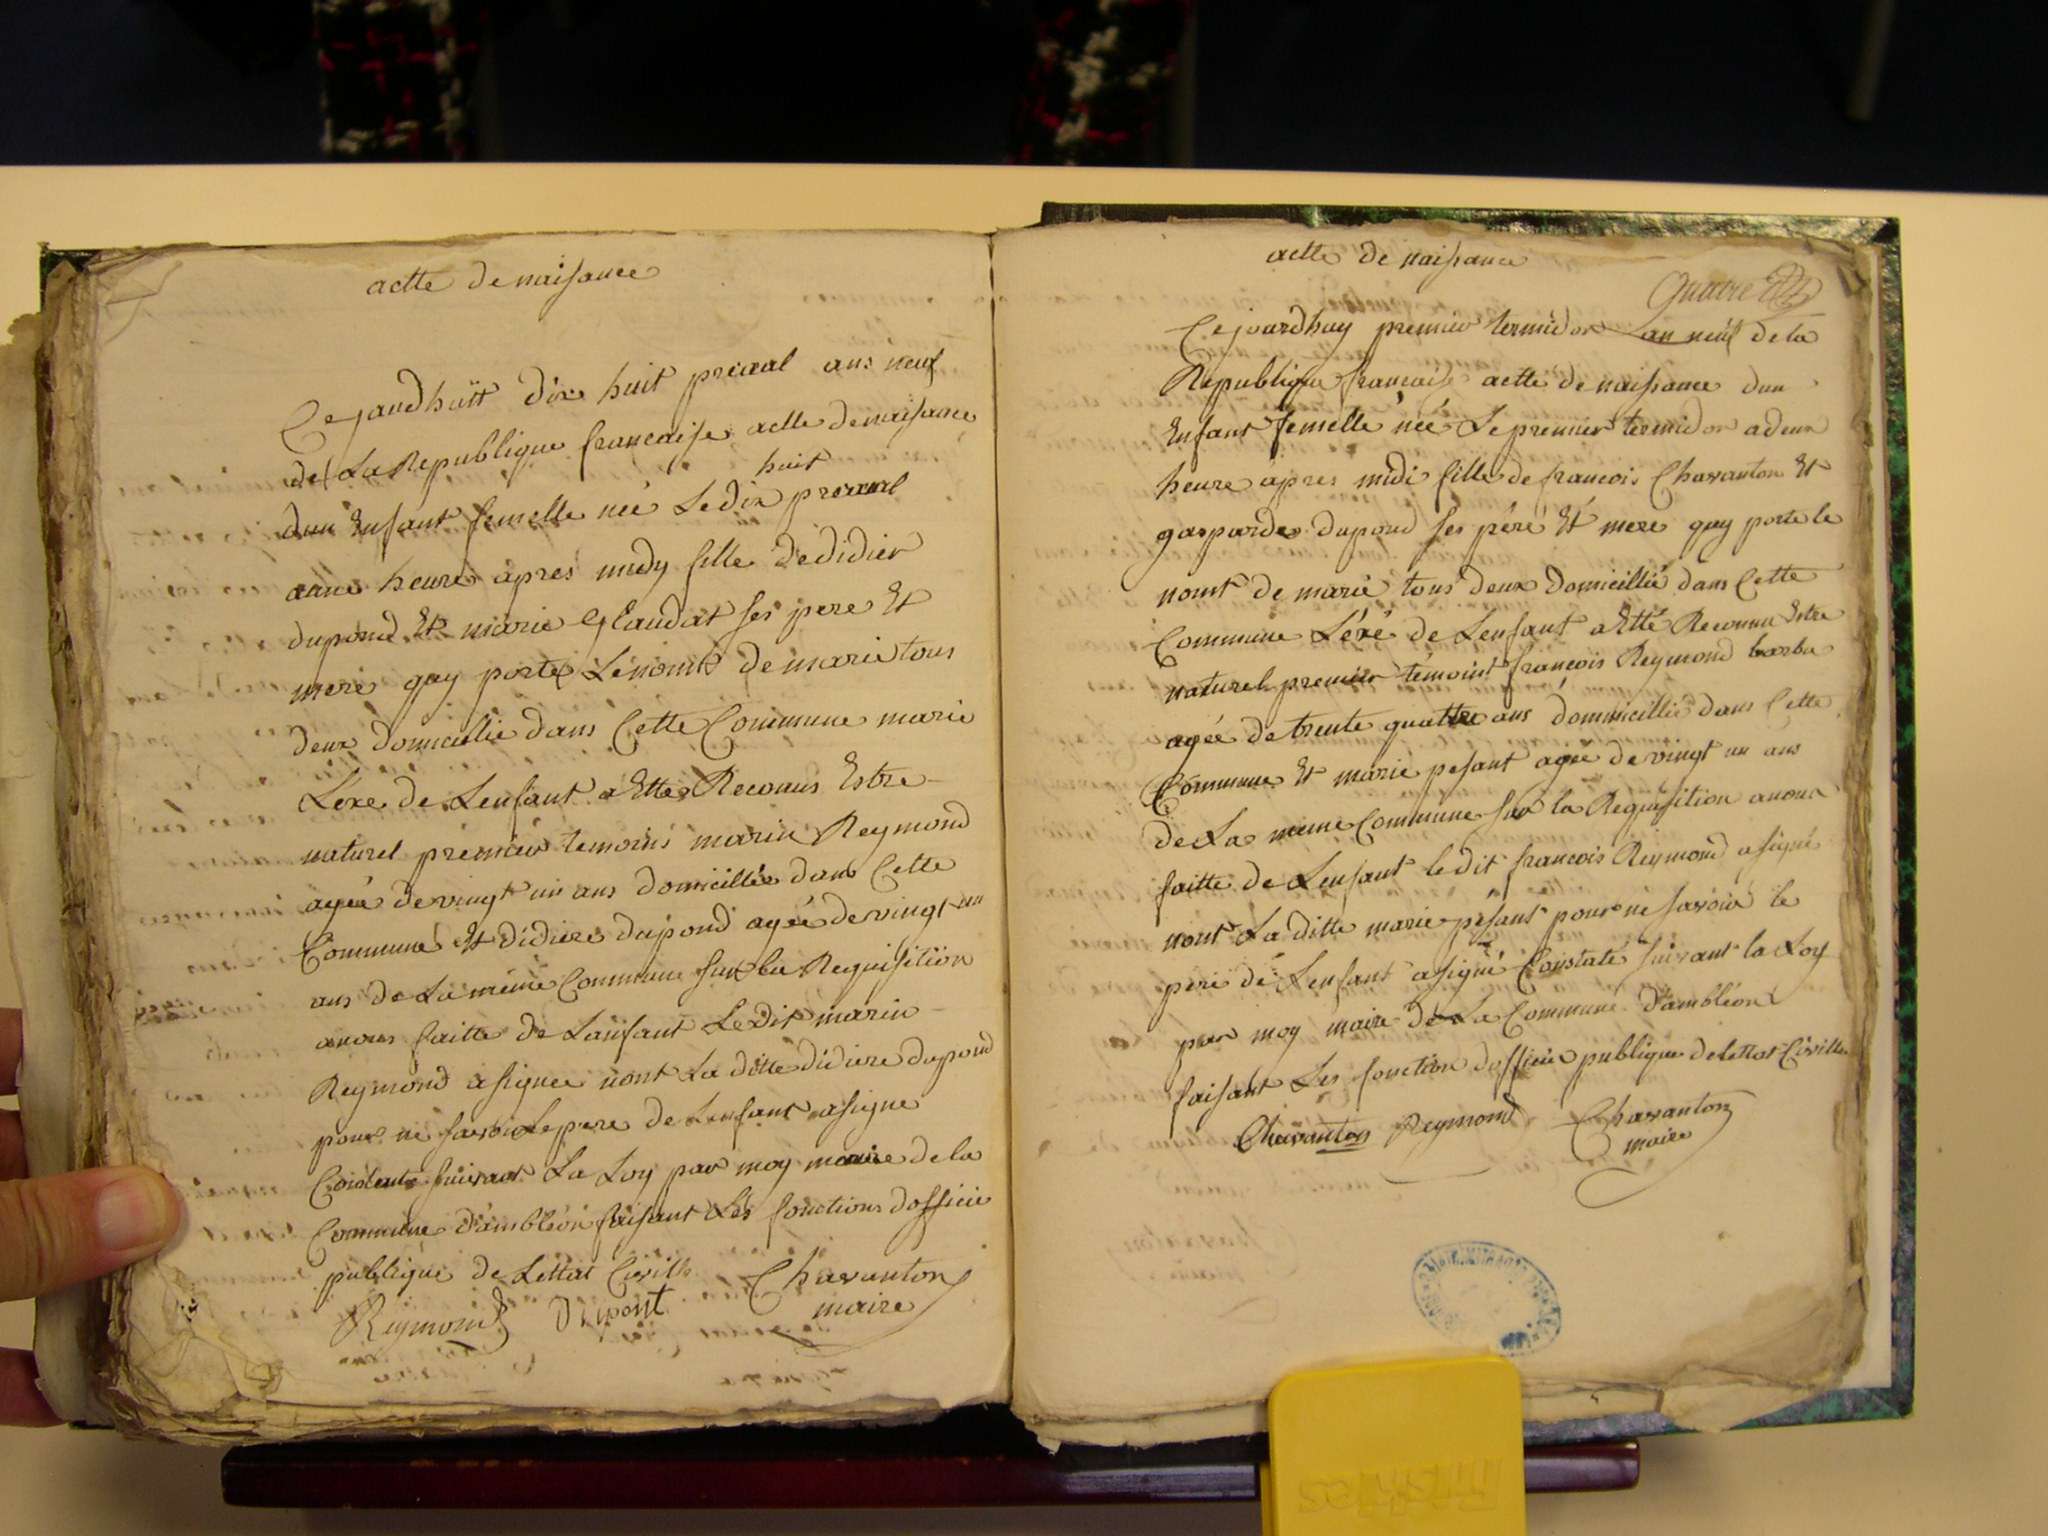 actte de naisance
Cejaudhuitt dix huit preraal ans neuf
de La Republique francaise actte de naisance
huit
dun Enfant femelle neé Le dix preraal
aune heure apres midy fille de didier
dupond Et marie Glaudat ses pere Et
mere quy porte Le nomt de marie tous
deux domicillie dans Cette Commune marie
Léxe de Lenfant a Etté Reconus Estre
naturel premier temoins marin Reymond
agéé de vingt un ans domicilliés dans Cette
Commune Et didiere dupond agéé de vingt un
ans de La même Commune sur la Requisition
anous faitte de Lanfant Ledit marin
Reymond asignee nont La ditte didiere dupond
pour ne savoir Le pere de Lenfant asigne
Constaté suivant La Loy par moy maire de la
Commune d'ambléon faisant Les fonctions dofficié
publique de Lettat Civille
Chavanton
maire
Reymond Dupont
actte de naisance
Quatre
Cejourdhuy premier termidor Lan neuf de la
Republique francaise actte de naisance dun
Enfant femelle néé Le premier termidor a deux
heure apres midi fille de francois Chavanton Et
gasparde dupond ses péré Et mere quy porte le
nomt de marie tous deux domicillié dans Cette
Commune Léxé de Lenfant a Etté Reconnu Estre
naturel premier temoint françois Reymond barbu
agéé de trente quattre ans dommicillié dans Cette
Commune Et marie pesant agée de vingt un ans
de La meme Commune sur la Requisition anous
faitte de Lenfant ledit francois Reymond asigné
nont La ditte marie pesant pour ne savoir le
pere de Lenfant asigné Constaté suivant la Loy
par moy maire de La Commune d'ambléon
faisant Les fonction dofficié publique de lettat Civille
Chavanton Reymond Chavanton
maire